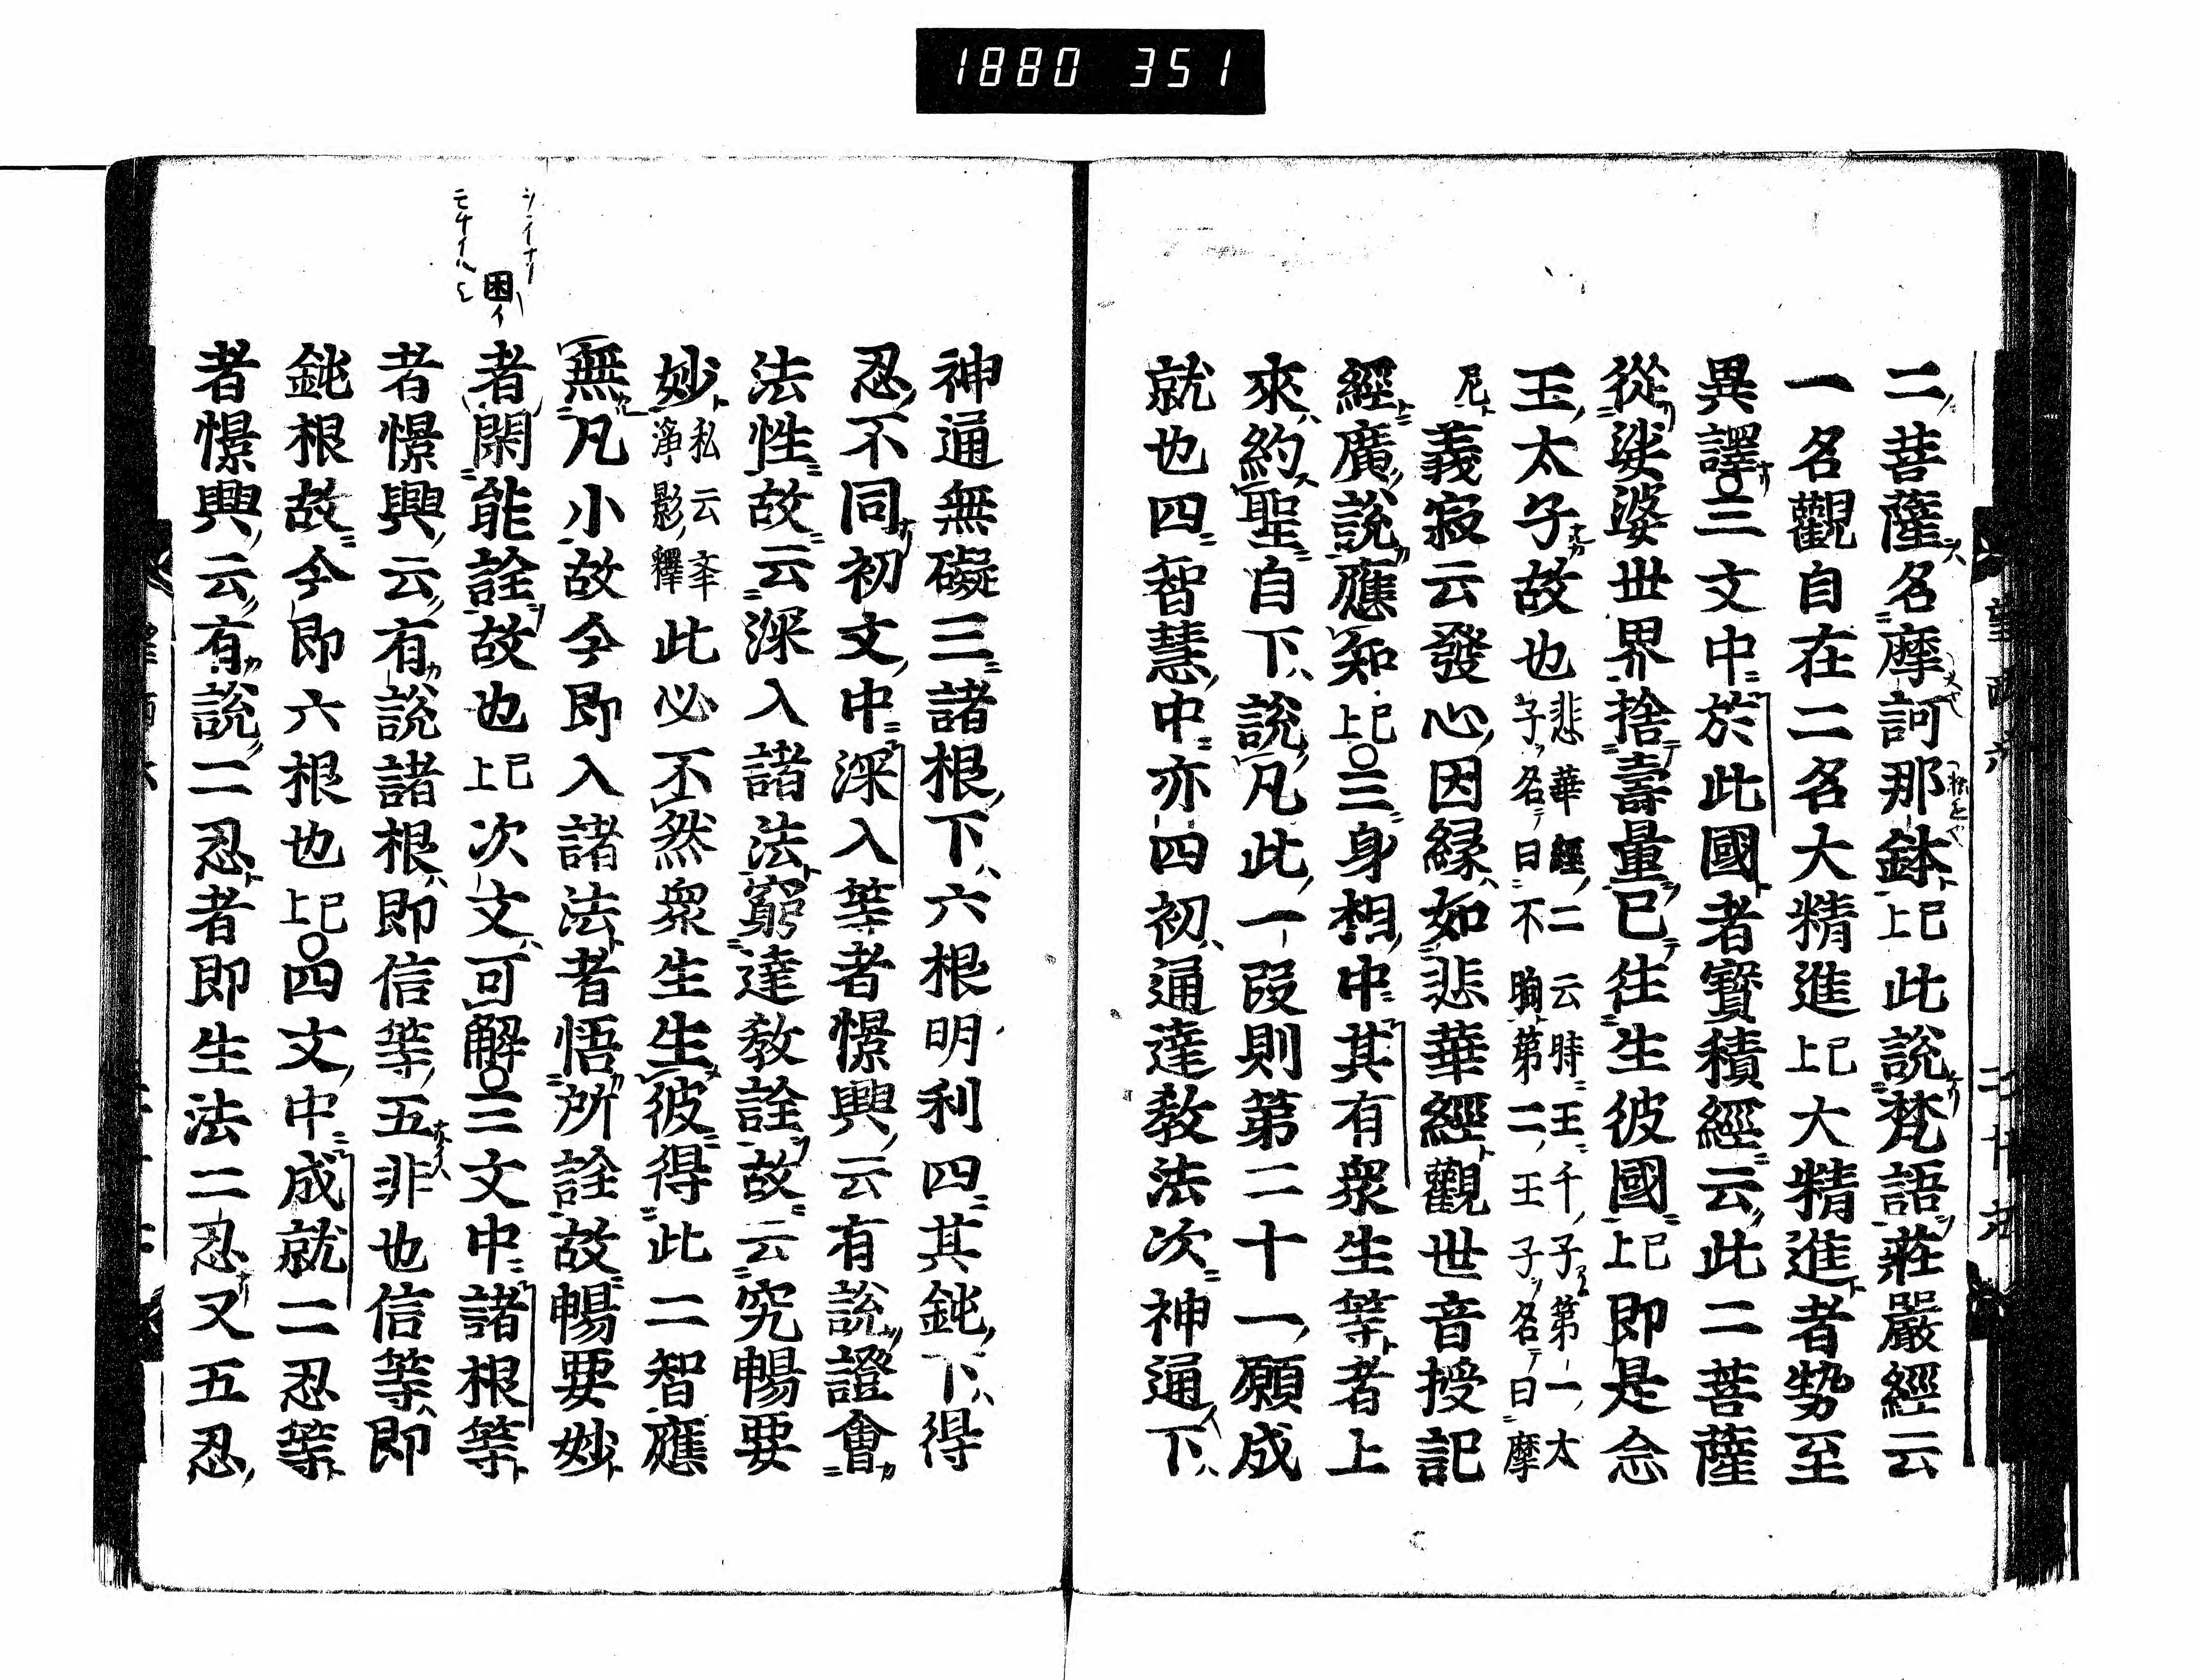 1880 351
二菩薩名摩訶那鉢已上此說梵語莊嚴經云
一名觀自在二名大精進已上大精進者勢至
異譯○三文中於此國者寶積經云此二菩薩
從娑婆世界捨壽量已往生彼國已上即是念
王太子故也悲華經二云時王千子第一太子名曰不眴第二王子名曰摩
尼義寂云發心因緣如悲華經觀世音授記
經廣說應知已上○三身相中其有衆生等者上
來約聖自下說凡此一段則第二十一願成
就也四智慧中亦四初通達教法次神通下
神通無礙三諸根下六根明利四其鈍下得
忍不同初文中深入等者憬興云有說證會
法性故云深入諸法窮達教詮故云究暢要
妙私云淨影釋此必不然衆生生彼得此二智應
無凡小故今即入諸法者悟所詮故暢要妙
困イ
者閑能詮故也已上次文可解○三文中諸根等
者憬興云有說諸根即信等五非也信等即
鈍根故今即六根也已上○四文中成就二忍等
者憬興云有說二忍者即生法二忍又五忍